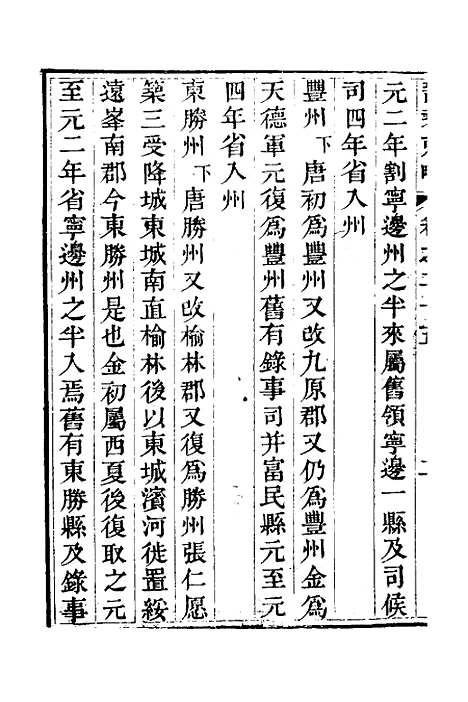 元二年割寧邊州之半來屬舊領寧邊一縣及司候
司四年省入州
豐州下唐初爲豐州又改九原郡又仍爲豐州金爲
天德軍元復爲豐州舊有錄事司并富民縣元至元
四年省入州
東勝州下唐勝州又改榆林郡又復爲勝州張仁愿
築三受降城東城南直榆林後以東城濱河徙置綏
遠峯南郡今東勝州是也金初屬西夏後復取之元
至元二年省寧邊州之半入焉舊有東勝縣及錄事